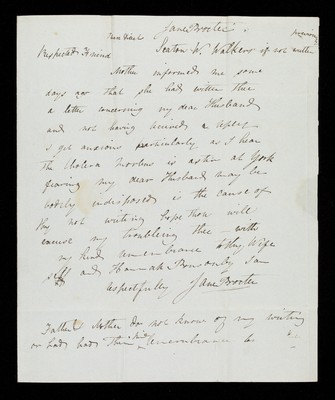 Jane Procter
Respected Friend
Seaton W. Walkers if not
Mother informed me some
days ago that she had written thee
a letter concerning my dear Husband
and not having received a reply
I get anxious particularly as I hear
the Cholera Morbus is astir at York
fearing my dear Husband may be
bodily indisposed is the cause of
thy not writing hope thou will
excuse my troubling thee with
my kind remembrance to thy Wife
self and Hannah Ponsonby I am
respectfully Jane Procter
Father & Mother do not know of my writing
or had had their kind remembrance